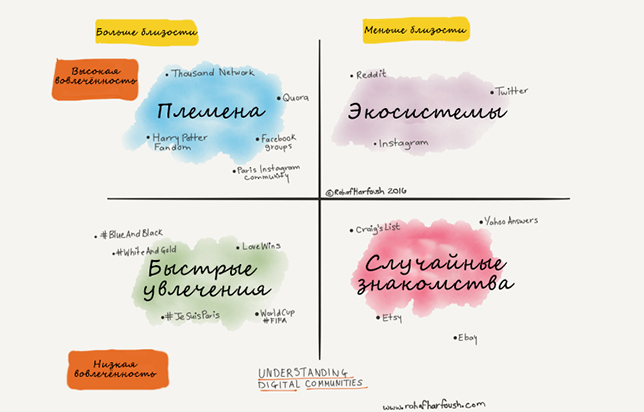 Больше близости
Меньше близости
Высокая
вовлечённость
Thousand Network
Quora
Племена
Harry Potter
Fandom
Facebook
groups
Paris Instagram
community
Reddit
Twitter
Экосистемы
Instagram
©RahafHarfoush 2016
#BlueAndBlack
#WhiteAndGold
LoveWins
Быстрые
увлечения
#JeSuisParis
WorldCup
#FIFA
Craig's List
Yahoo Answers
Случайные
знакомства
Etsy
Ebay
Низкая
вовлечённость
UNDERSTANDING
DIGITAL COMMUNITIES
www.rahafharfoush.com